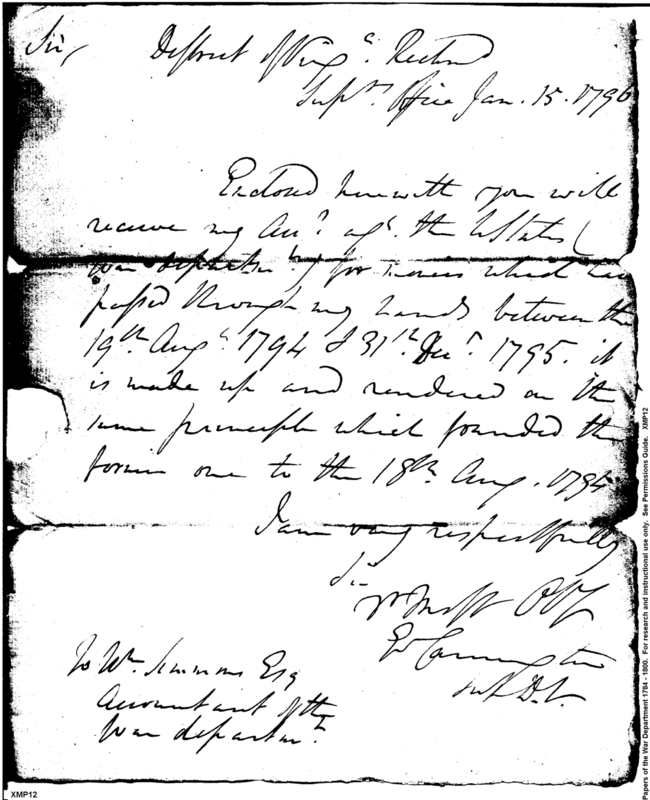 Sir, District of Virga. Richmd
Suprs. Office Jan. 15. 1796
Enclosed herewith you will
receive my Acct. agt. the UStates (
War departmt.) for monies which have
passed through my hands between the
19th. Augt. 1794 & 31st. Decr. 1795. it
is made up and rendered on the
same principle which founded the
former one to the 18th Aug. 1794.
I am very respectfully
Sir
yr. Most Obt
Ed Carrington
To Wm Simmons Esq
Accountant of the
War departmt.
XMP12
Papers of the War Department 1784 - 1800. For research and instructional use only. See Permissions Guide. XMP12